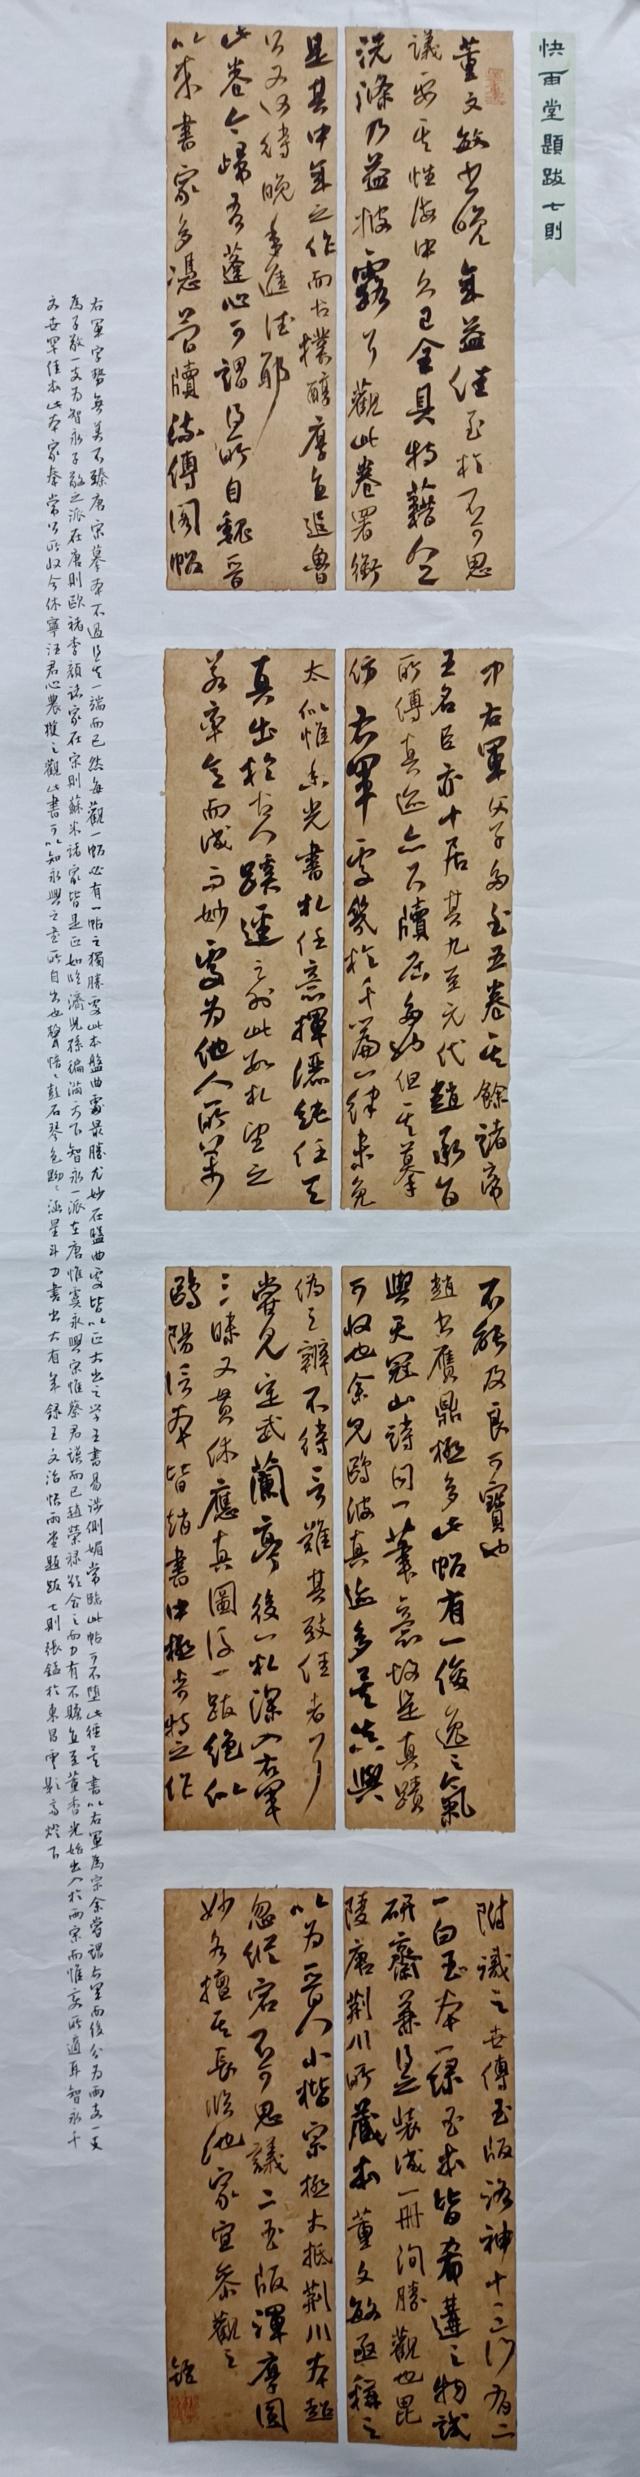 快雨堂題跋七則
董文敏書晚年益佳至於不可思
議要其性海中久已全具特藉
洗滌乃益披露耳觀此卷署銜
是其中年之作而古樸醇厚直追魯
公又何待晚年進德耶
此卷今歸吾蓬心可謂得所自魏晉
以來書家多憑簡牘流傳閣帖
中右軍父子多至五卷其餘諸帝
王名臣亦十居其九至元代趙承旨
所傳真迹亦尺牘居多但其摹
仿右軍處幾於千篇一律未免
太似惟香光書札任意揮灑純任天
真出於古人蹊徑之外此數札望之
若率意而成而妙處為他人所萬
不能及良可寶也
趙書贋鼎極多此帖有一種逸氣
與天冠山詩同一筆意故是真蹟
可收也余見鷗波真迹多其真與
偽之辨不待言雖其致佳者耳
嘗見定武蘭亭後一札深入右軍
三昧又貫休應真圖後一跋絕似
鷗陽信本皆趙書中極奇特之作
附識之世傳玉版洛神十三行有二
一白玉本一綠玉本皆希遘之物試
研齋兼得之裝成一冊洵勝觀也毘
陵唐荊川所藏本董文敏亟稱之
以為晉人小楷宗極大抵荊川本超
忽縱宕不可思議二玉版渾厚圓
妙各擅其長臨池家宜參觀之
右軍字勢無美不臻唐宋摹本不過得其一端而已然每觀一帖必有一帖之獨勝處此本盤曲處最勝尤妙在盤曲處皆以正大出之學王書易涉側媚常臨此帖可不墮此徑其書以右軍為宗余嘗謂右軍而後分為兩支一支
為子敬一支為智永子敬之派在唐則歐褚李顏諸家在宋則蘇米諸家皆是正如臨濟兒孫徧滿天下智永一派在唐惟虞永興宋惟蔡君謨而已趙榮祿欲合之而力有不贍直至董香光始出入於兩宗而惟意所適耳智永千
文世罕佳本此本家秦常公所收今休寧汪君心農獲之觀此書可以知永興之書所自出也
錄王文治快雨堂題跋七則張錳於東昌